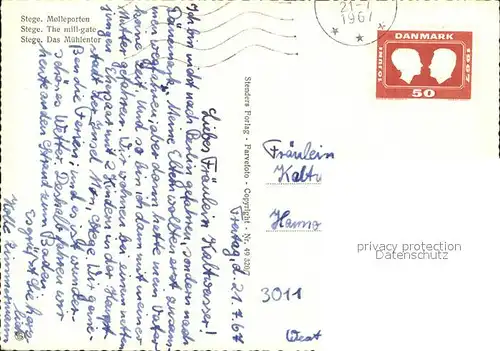 Stege. Mølleporten
Stege. The mill-gate
Stege. Das Mühlentor
21.-7
1967
DANMARK
1967
50
Stenders Forlag - Farvefoto - Copyright - Nr. 49 320/7
Freitag, d. 21.7.67
Liebes Fräulein Kaltwasser!
Ich bin nicht nach Berlin gefahren, sondern nach
Dänemark. Meine Eltern wollten erst zusam-
men wegfahren, aber dann hatte mein Vater
keine Lust und so bin ich dann mit meiner
Mutter gefahren. Wir wohnen bei einem netten
jungen Ehepaar mit 2 Kindern in der Haupt-
stadt der Insel Møn, Stege. Wir genie-
ßen die Ferien, und es ist wunder-
schönes Wetter. Deshalb fahren wir
heute an den Strand zum Baden.
Es grüßt Sie herz-
lich
Zimmermann
Fräulein
Kaltw
Hanno
3011
West
privacy protection
oldthing.de